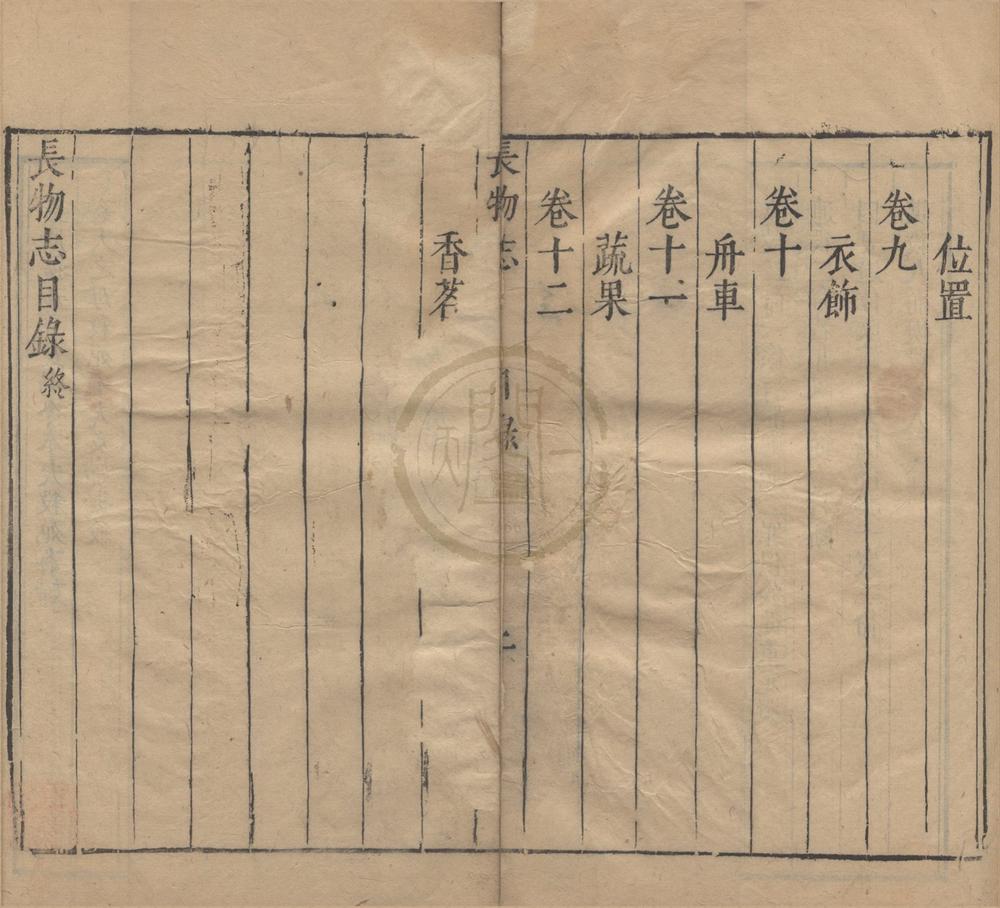 位置
卷九
衣飾
卷十
舟車
卷十一
蔬果
卷十二
長物志 目錄
香茗
長物志目錄終